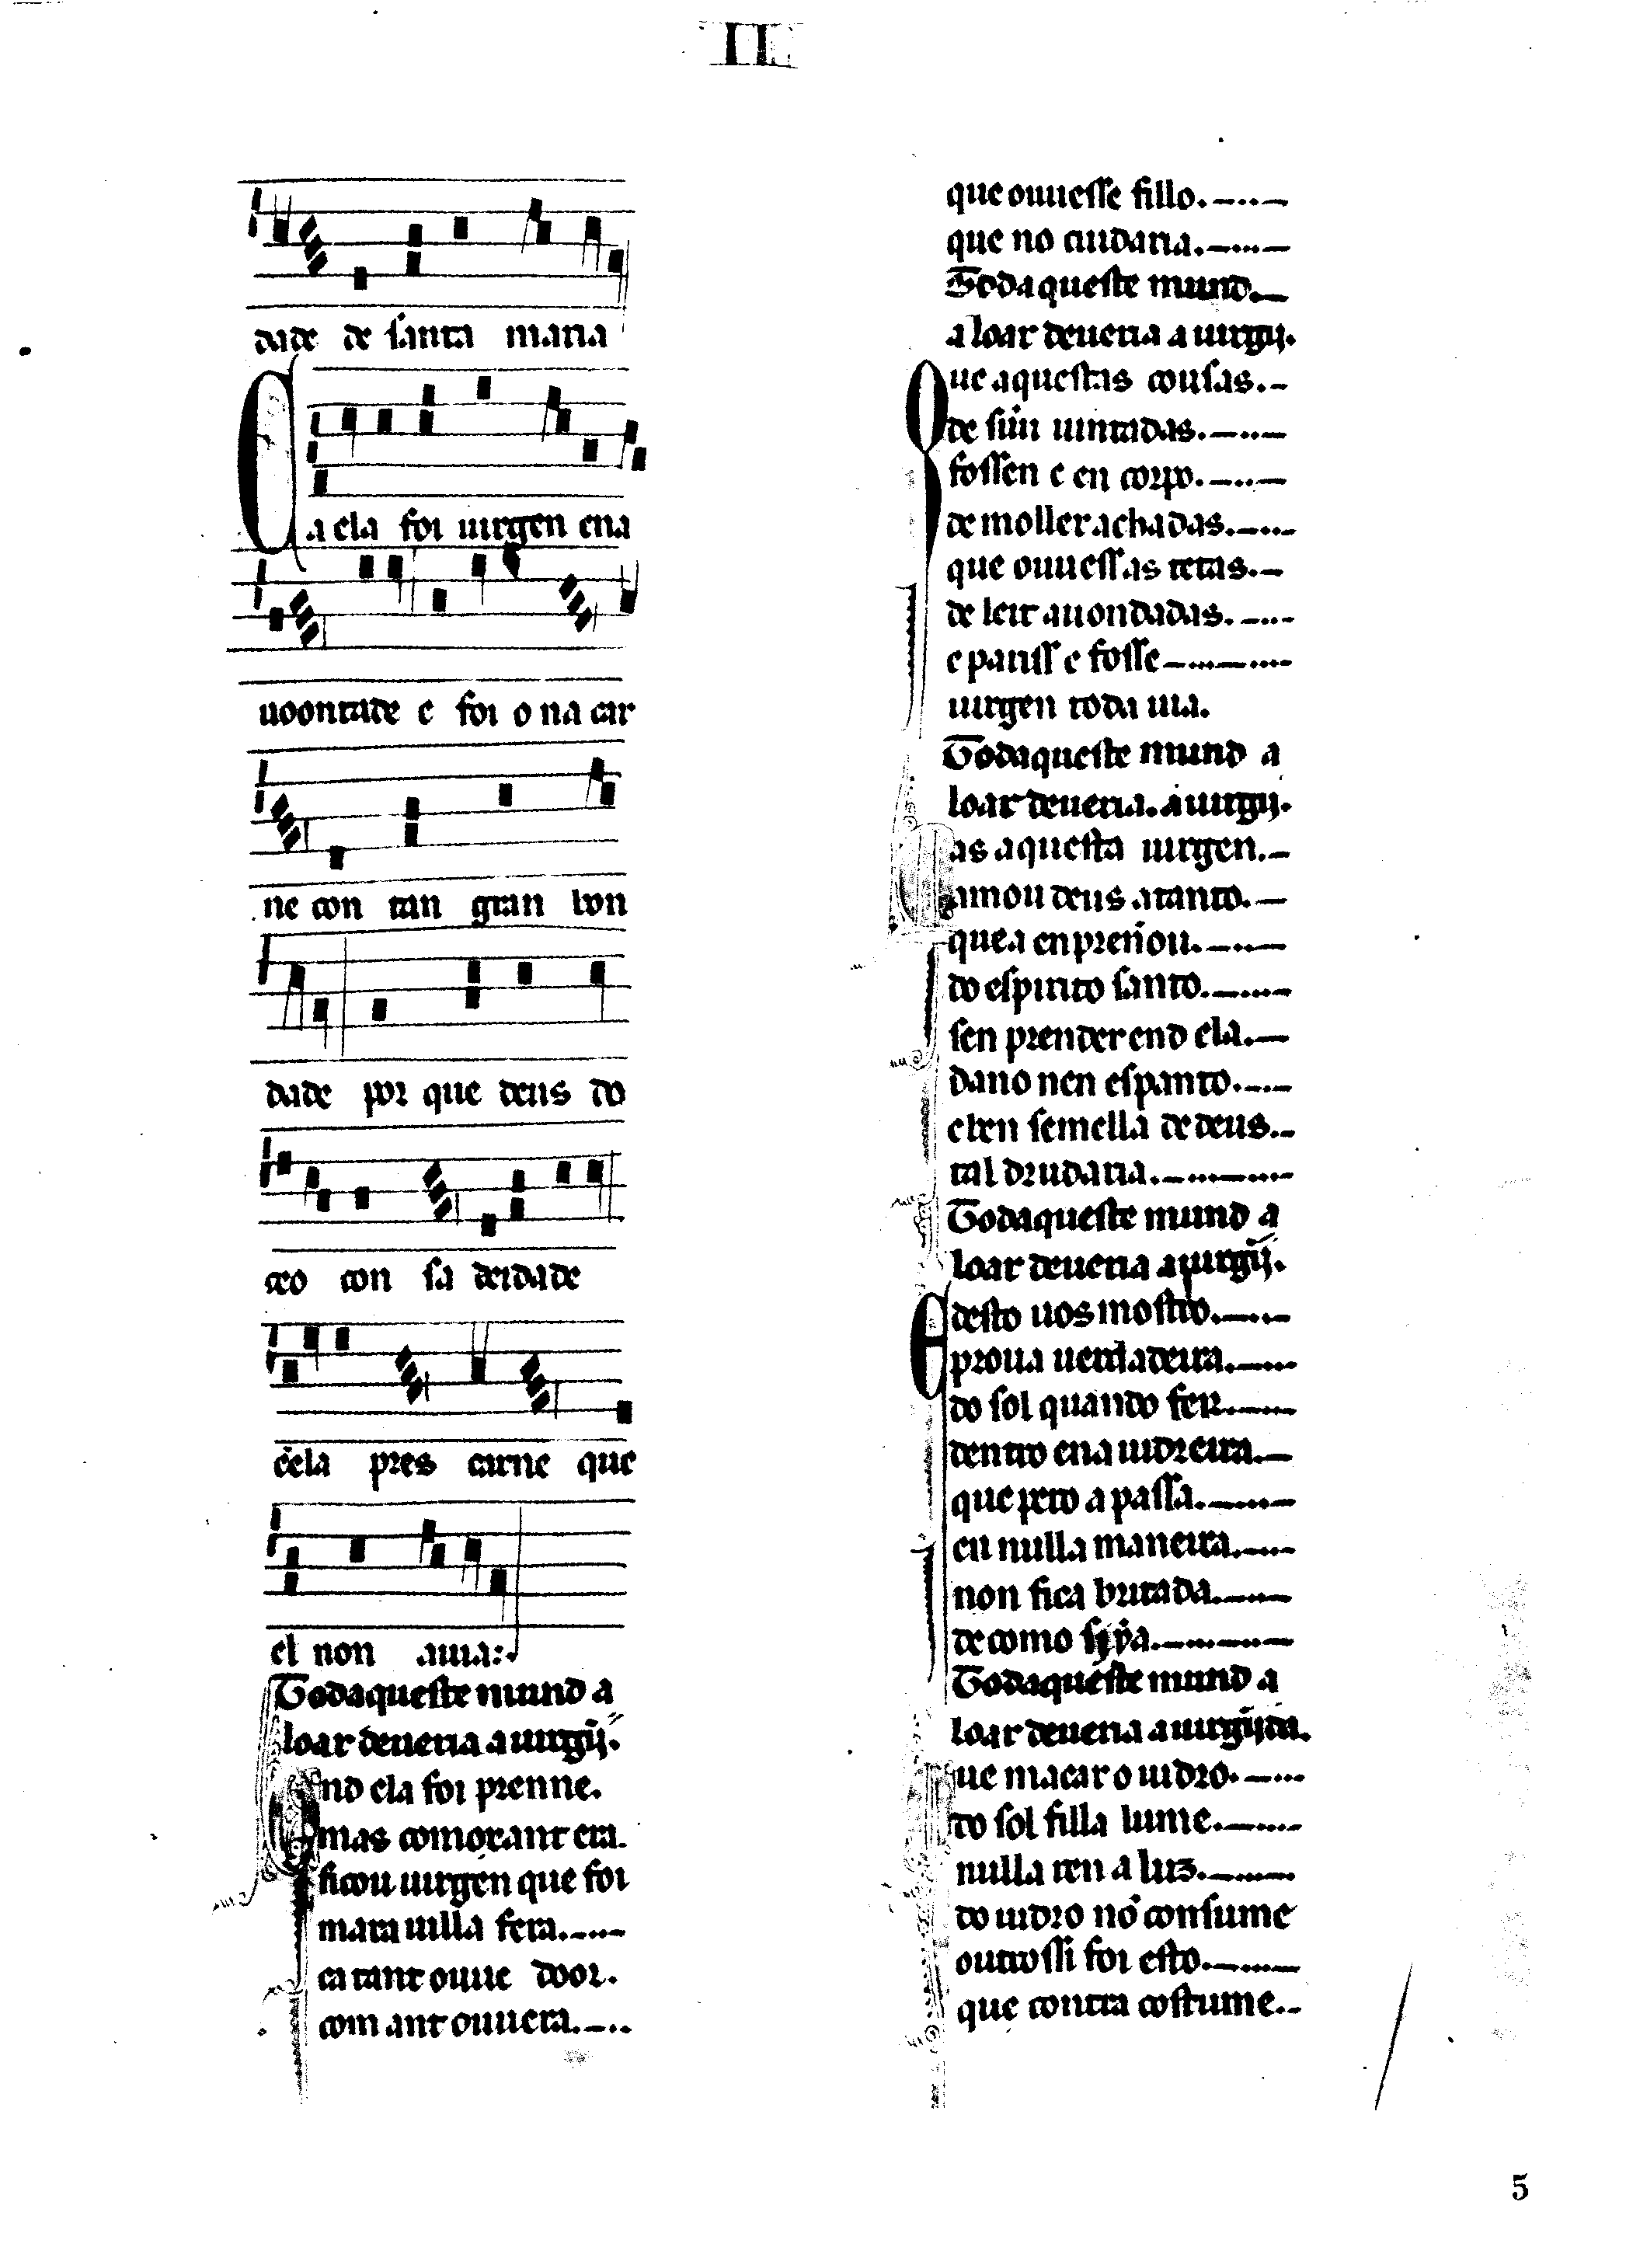 II
dade de santa maria
Ca ela foi uirgen ena
uoontade e foi o na car
ne con tan gran bon
dade por que deus do
ceo con sa deidade
ẽela pres carne que
el non auia:
Todaqueste mund a
loar deueria a uirgỹ.
End ela foi prenne.
mas comorant era.
ficou uirgen que foi
marauilla fera.
ca tant ouue door.
com ant ouuera.
que ouuesse fillo.
que no cuidaria.
Todaqueste mund.
a loar deueria a uirgij.
Que aquestas cousas.
de sũu uintadas.
fossen e en corpo.
de moller achadas.
que ouuess as tetas.
de leit auondadas.
e pariss e fosse
uirgen toda uia.
Todaqueste mund a
loar deueria. a uirgij.
Mas aquesta uirgen.
amou deus atanto.
que a enpreñou.
do espirito santo.
sen prender end ela.
dano nen espanto.
e ben semella de deus.
tal drudaria.
Todaqueste mund a
loar deueria a uirgĩj.
E desto uos mostro.
proua uerdadeira.
do sol quando fer.
dentro ena uidreira.
que pero a passa.
en nulla maneira.
non fica britada.
de como siya.
Todaqueste mund a
loar deueria a uirgĩj da.
Que macar o uidro.
do sol filla lume.
nulla ren a luz.
do uidro nõ consume
outrossi foi esto.
que contra costume.
5